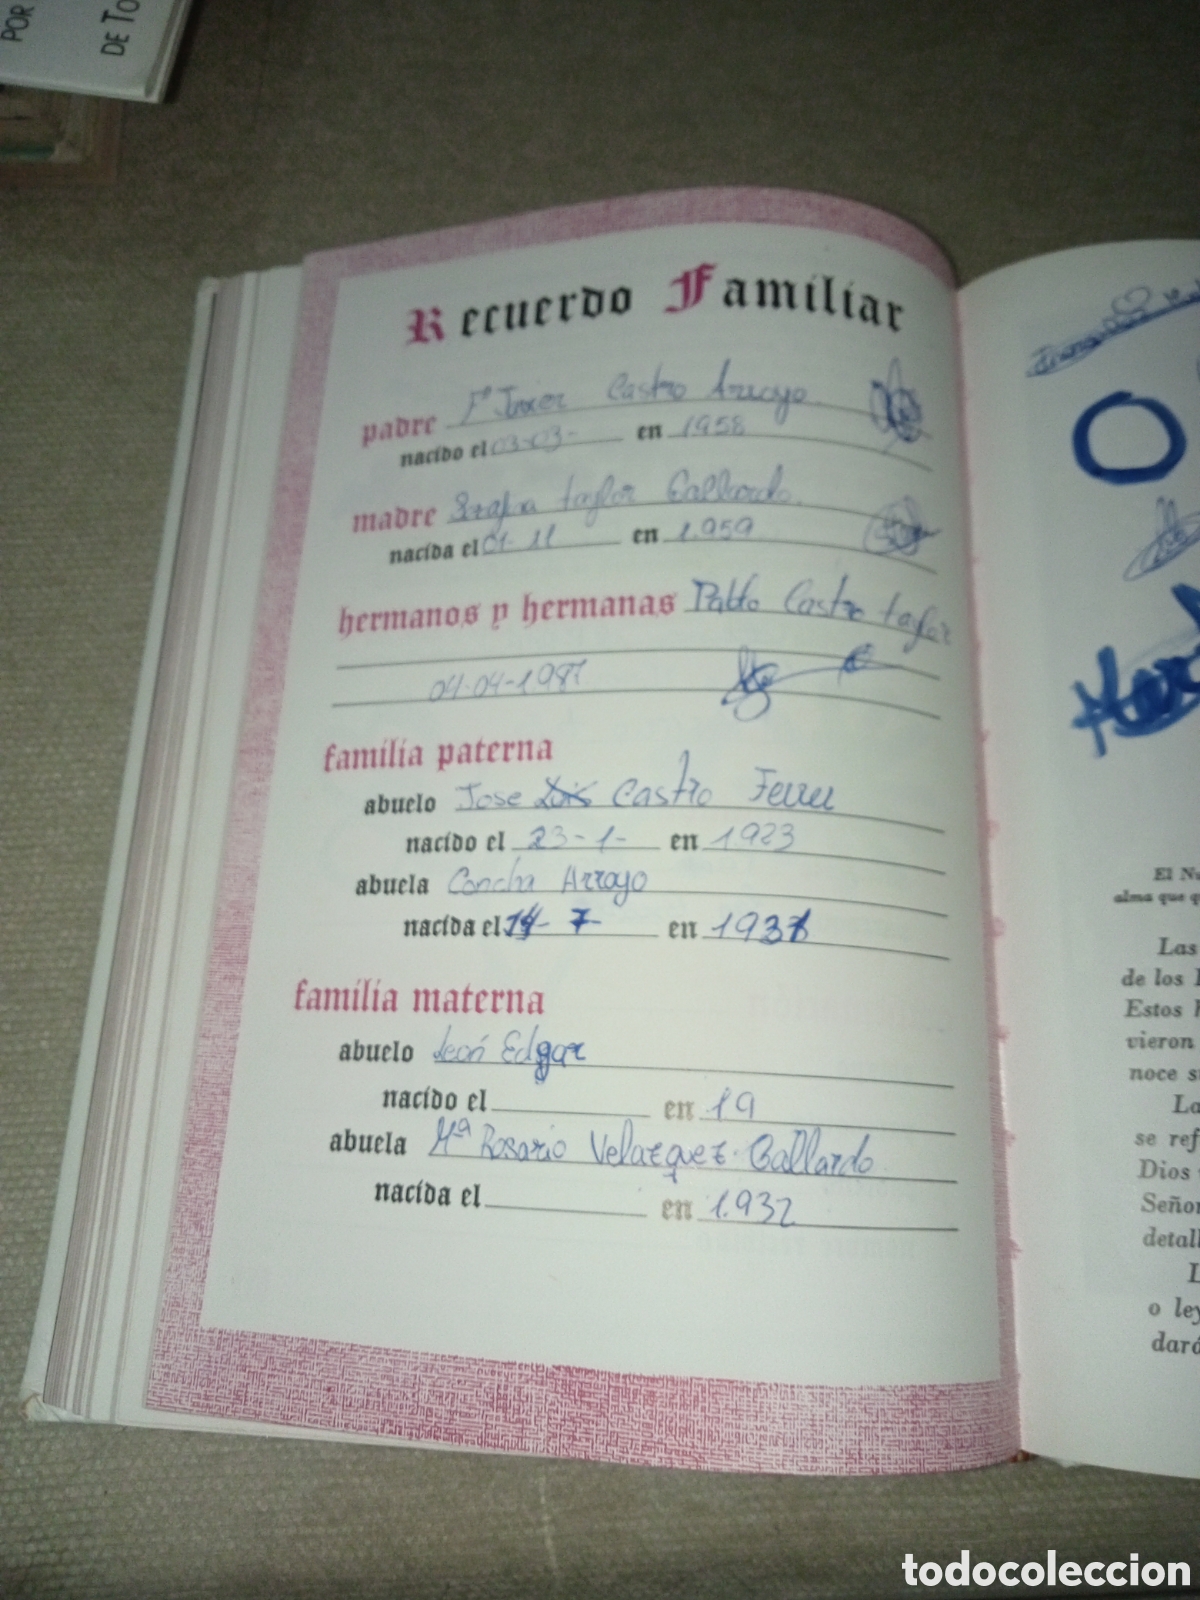 POR
DE TO
Recuerdo Familiar
padre Fº Javier Castro Arroyo
nacido el 03-03- en 1958
madre Taylor Gallardo
nacida el 01-11 en 1.959
hermanos y hermanas Pablo Castro Taylor
04-04-1987
familia paterna
abuelo Jose Luis Castro Ferrer
nacido el 23-1- en 1923
abuela Concha Arroyo
nacida el 14-7- en
familia materna
abuelo León Edgar
nacido el en 19
abuela Mª Rosario Velazquez-Gallardo
nacida el en 1.932
El Nu
alma que q
Las
de los
Estos h
vieron
noce s
La
se ref
Dios
Señor
detall
L
o ley
dará
todocoleccion